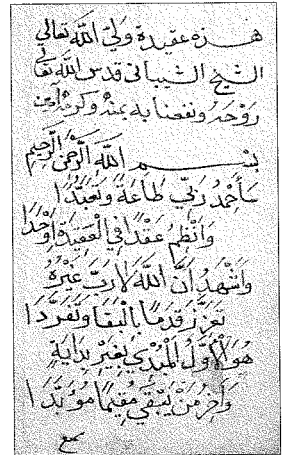 هذه عقيدة ولي الله تعالي
الشيخ الشيباني قدس الله تعالى
روحه ونفعنا به بمنه وكرمه آمين
بسم الله الرحمن الرحيم
سَأَحْمَدُ رَبِّي طَاعَةً وَتَعَبُّدًا
وَأَنْظِمُ عَقْدًا فِي الْعَقِيدَةِ أَوْحَدَا
وَأَشْهَدُ أَنَّ اللهَ لَا رَبَّ غَيْرُهُ
تَعَزَّزَ قِدْمًا بِالْبَقَا وَتَفَرَّدَا
هُوَ الْأَوَّلُ الْمُبْدِي بِغَيْرِ بِدَايَةٍ
وَآخِرُ مَنْ يَبْقَي مُقِيمًا مُؤَبَّدَا